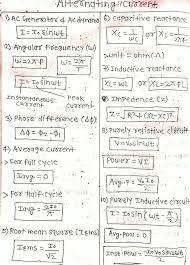 Alternating Current
1) AC Generator & Ac dynamo
I = I₀ sinωt
2) Angular Frequency (ω)
ω = 2πF
I = I₀ sinωt
Instantaneous current
Peak current
3) Phase difference (ΔΦ)
ΔΦ = Φ₂ - Φ₁
4) Average current
> For full cycle
Iavg = 0
> For Half cycle
5) Root mean square (Irms)
Irms = I₀/√2
6) Capacitive reactance
Xc = 1/ωc or Xc = 1/2πFc
> unit = ohm (Ω)
7) Inductive reactance
XL = ωL or XL = 2πFL
8) Impedence (Z)
Z = √R² + (XL-XC)²
9) Purely resistive circuit
V = V₀ sinωt
Power = VI
Avg.P = V₀I₀/2
10) Purely Inductive circuit
I = I₀ sin(ωt - π/2)
Avg.Pow = 0